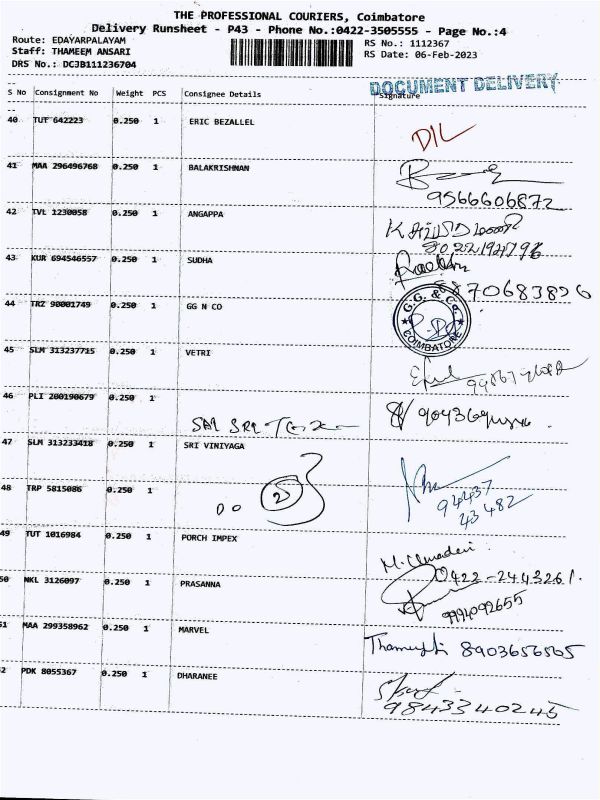 THE PROFESSIONAL COURIERS, Coimbatore
Delivery Runsheet - P43 - Phone No.:0422-3505555 - Page No.:4
Route: EDAYARPALAYAM RS No.: 1112367
Staff: THAMEEM ANSARI RS Date: 06-Feb-2023
DRS No.: DCJB111236704
DOCUMENT DELIVERY
S No Consignment No Weight PCS Consignee Details Signature
40 TUT 642223 0.250 1 ERIC BEZALLEL
41 MAA 296496768 0.250 1 BALAKRISHNAN
9566606872
42 TVL 1230058 0.250 1 ANGAPPA
43 KUR 694546557 0.250 1 SUDHA
8870683896
44 TRZ 90001749 0.250 1 GG N CO
G.G. & Co. COIMBATORE
45 SLM 313237715 0.250 1 VETRI
46 PLI 200190679 0.250 1
SAI SRI
47 SLM 313233418 0.250 1 SRI VINIYAGA
94437
43482
48 TRP 5815086 0.250 1
DO 2
49 TUT 1016984 0.250 1 PORCH IMPEX
M. Umadevi
0422-2443261.
50 NKL 3126097 0.250 1 PRASANNA
9994092655
51 MAA 299358962 0.250 1 MARVEL
8903656565
52 PDK 8055367 0.250 1 DHARANEE
9843340245